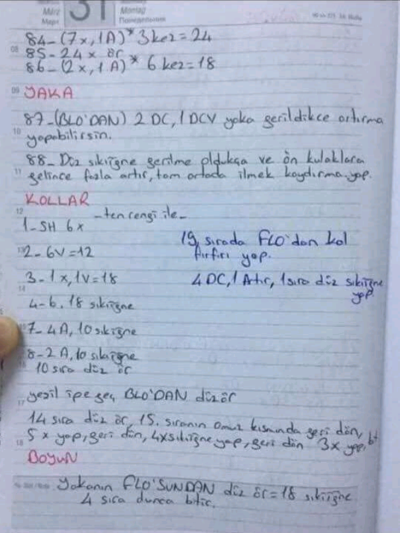 März 31 Montag
Mart Понедельник
84-(7x,1A)* 3 kez = 24
85-24 x ör
86-(2x,1A)* 6 kez = 18
YAKA
87-(BLO'DAN) 2 DC, 1 DCV yaka gerildikce artırma
yapabilirsin.
88- Düz sıkiğne gerilme oldukça ve ön kulaklara
gelince fazla artır, tam ortada ilmek kaydırma yap.
KOLLAR
-ten rengi ile-
1-SH 6x
2-6V=12
19. sırada FLO'dan kol
fırfırı yap.
3-1x,1V=18
4 DC, 1 Atır, 1 sıra düz sıkiğne
yap
4-6. 18 sıkiğne
7-4A, 10 sıkiğne
8-2A, 10 sıkiğne
10 sıra düz ör
yeşil ipe geç BLO'DAN düz ör
14 sıra düz ör, 15. sıranın omuz kısmında geri dön,
5 x yap, geri dön, 4x sıkiğne yap, geri dön 3x yap, bit
BOYUN
Yakanın FLO'SUNDAN düz ör = 18 sıkiğne
4 sıra dunca bitir.